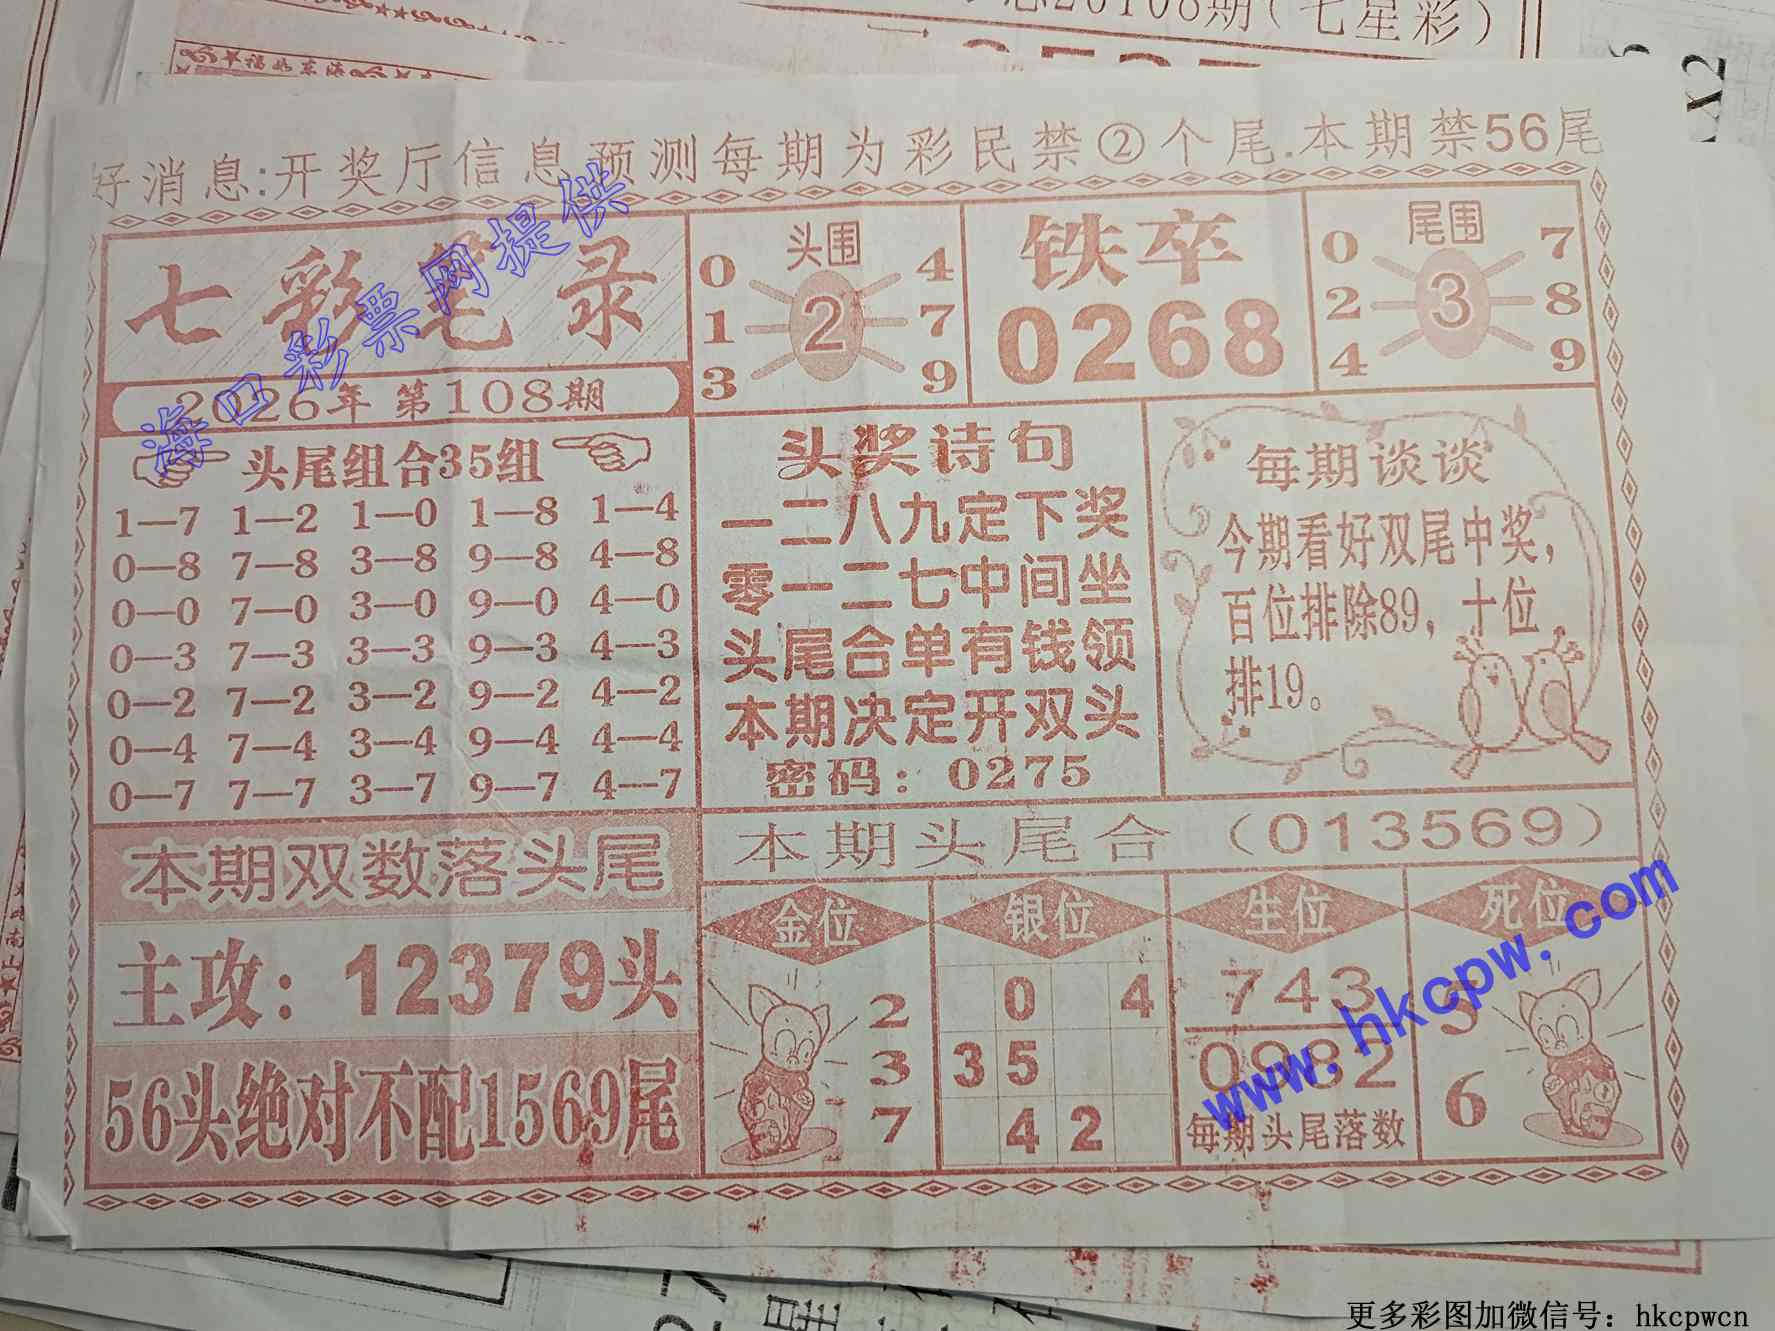 息20108期(七星彩)
X2
好消息:开奖厅信息预测每期为彩民禁②个尾.本期禁56尾
七彩笔录
2026年 第108期
头围
0 4
1 2 7
3 9
铁卒
0268
尾围
0 7
2 3 8
4 9
头尾组合35组
1—7 1—2 1—0 1—8 1—4
0—8 7—8 3—8 9—8 4—8
0—0 7—0 3—0 9—0 4—0
0—3 7—3 3—3 9—3 4—3
0—2 7—2 3—2 9—2 4—2
0—4 7—4 3—4 9—4 4—4
0—7 7—7 3—7 9—7 4—7
头奖诗句
一二八九定下奖
零一二七中间坐
头尾合单有钱领
本期决定开双头
密码：0275
每期谈谈
今期看好双尾中奖,
百位排除89，十位
排19。
本期双数落头尾
主攻：12379头
56头绝对不配1569尾
本期头尾合（013569）
金位
2
3
7
银位
0 4
35
42
生位
743
0982
每期头尾落数
死位
5
6
海口彩票网提供
www.hkcpw.com
更多彩图加微信号：hkcpwcn